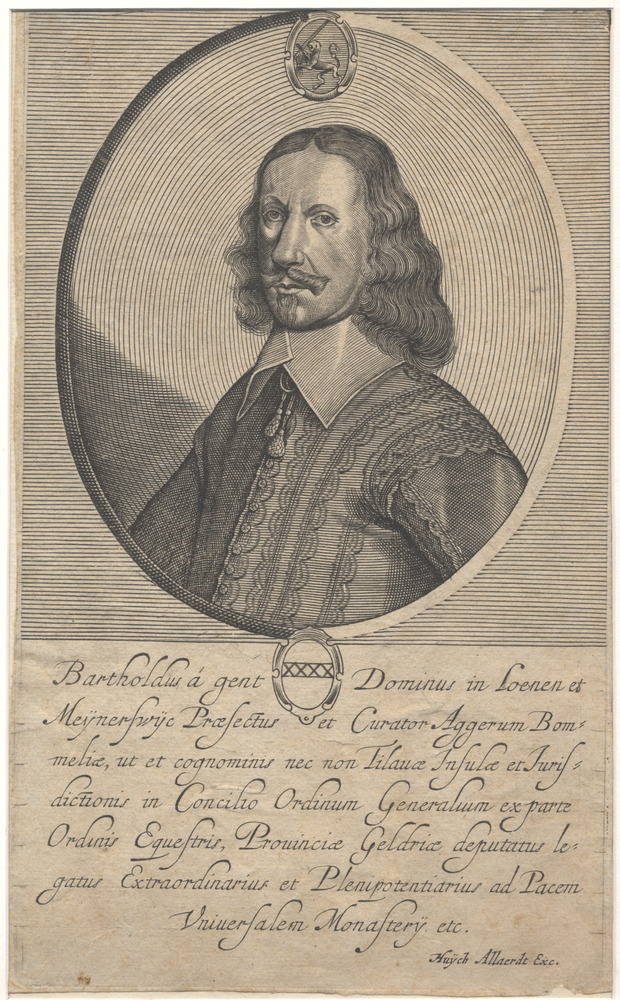 Bartholdus á gent Dominus in Loenen et
Meÿnerſwÿc Præfectus et Curator Aggerum Bom⸗
meliæ, ut et cognominis nec non Tilauæ Inſulæ et Iuriſ⸗
dictionis in Concilio Ordinum Generalium ex parte
Ordinis Equeſtris, Prouinciæ Geldriæ deputatus le⸗
gatus Extraordinarius et Plenipotentiarius ad Pacem
Vniuerſalem Monaſterÿ etc.
Huÿch Allaerdt Exc.